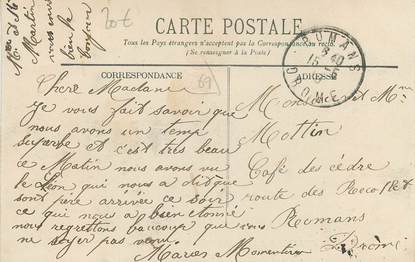 Mr et Me
Martin
vous souh
bien le
bonjour
20€
CARTE POSTALE
Tous les Pays étrangers n'acceptent pas la Correspondance au recto.
(Se renseigner à la Poste)
ROMANS
6 40
15
DROME
CORRESPONDANCE
69
Chere Madame
Je vous fait savoir que
nous avons un temp
superbe et c'est tres beau
le Matin nous avons vu
le Leon qui nous a dit que
sont pere arrivée ce soir
ce qui nous a bien etonné
nous regrettons baucoup que vous
ne soyer pas venu
Marius
Monsieur et Mme
Mottin
Café des cédre
route des Recollet
Romans
Drôme